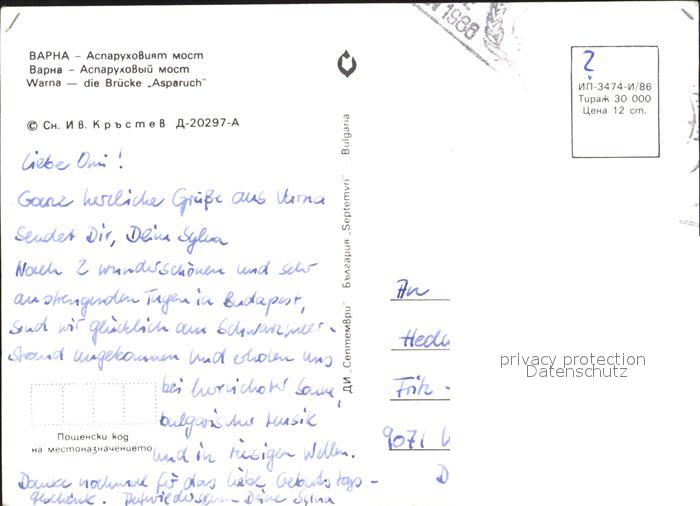 ВАРНА – Аспаруховият мост
Варна – Аспаруховый мост
Warna — die Brücke „Asparuch"
© Сн. Ив. Кръстев Д-20297-А
Liebe Omi!
Ganz herzliche Grüße aus Varna
sendet Dir, Deine Sylva
Nach 2 wunderschönen und sehr
anstrengenden Tagen in Budapest,
sind wir glücklich am Schwarzmeer-
strand angekommen und erholen uns
bei herrlichster Sonne,
bulgarischer Musik
und in riesigen Wellen.
Danke nochmal für das liebe Geburtstags-
geschenk. Auf wiedersehen Deine Sylva
Пощенски код
на местоназначението
ДИ „Септември" България „Septemvri" Bulgaria
1988
2
ИП-3474-И/86
Тираж 30 000
Цена 12 ст.
An
Hedw
Fritz -
9071
D
privacy protection
Datenschutz